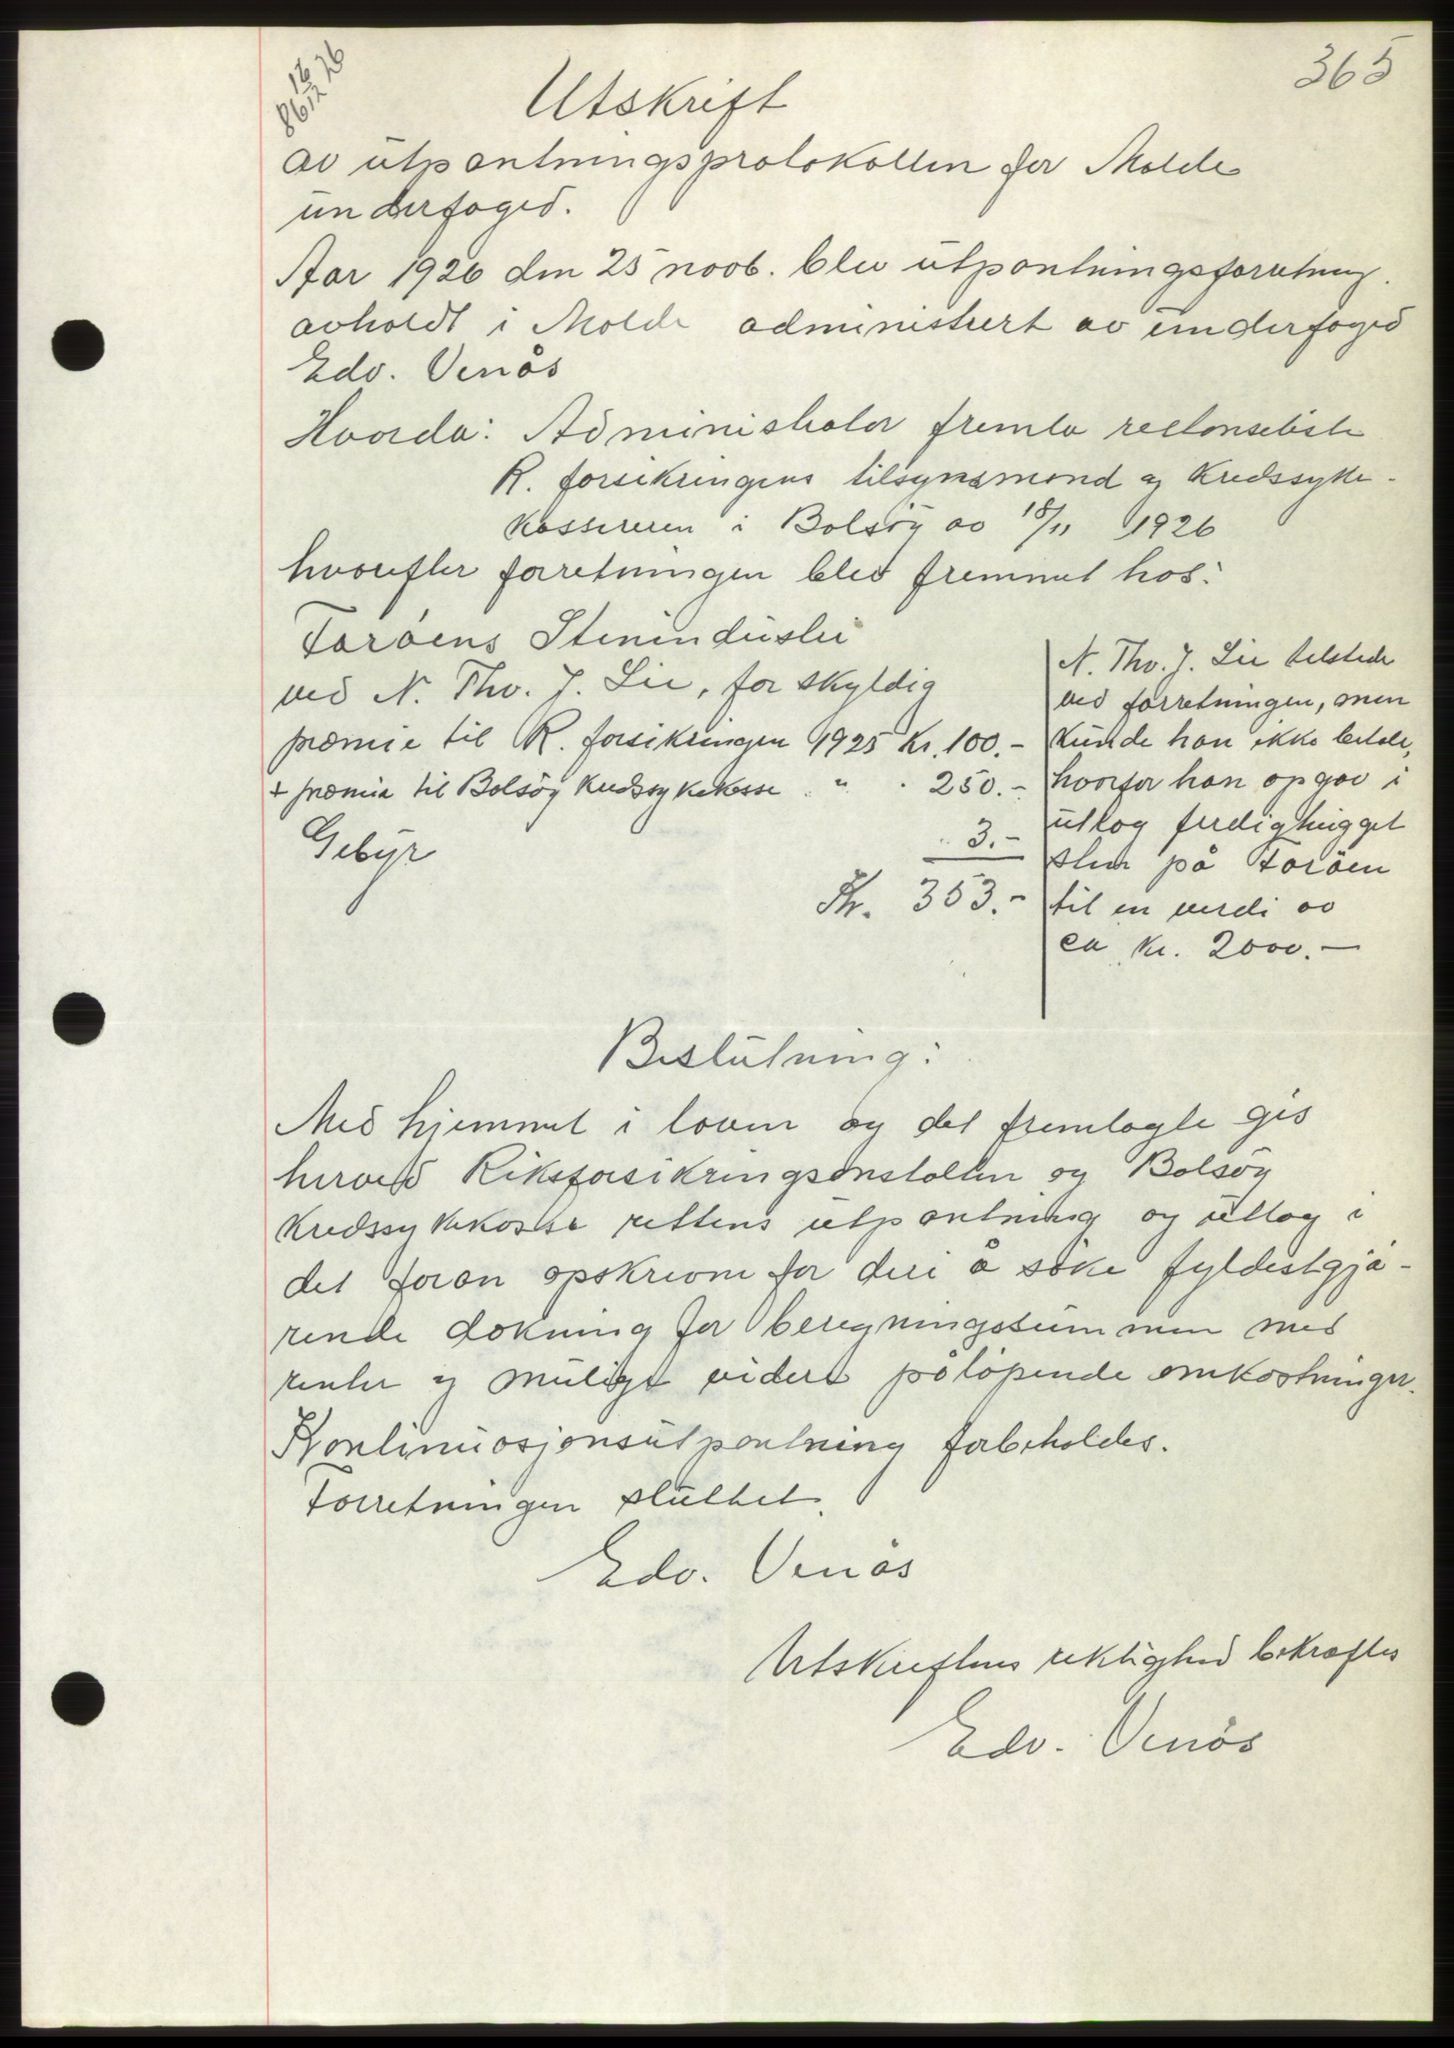 365
86 16/12 26
Utskrift
av utpantningsprotokollen for Molde
underfoged.
Aar 1926 den 25 novb. blev utpantningsforretning.
avholdt i Molde administrert av underfoged
Edv. Venås
Hvorda: Administrator fremla restanseliste
R. forsikringens tilsynsmand og kredssyke-
kassereren i Bolsöy av 18/11 1926
hvorefter forretningen blev fremmet hos:
Faröens Stenindustri
ved N. Thv. J. Lie, for skyldig
premie til R. forsikringen 1925 Kr. 100.-
+ premie til Bolsöy Kredssykekasse " . 250.-
Gebyr 3.-
Kr. 353.-
N. Thv. J. Lie tilstede
ved forretningen, men
kunde han ikke betale,
hvorfor han opgav i
utlæg ferdighugget
sten på Faröen
til en verdi av
ca kr. 2000.-
Beslutning:
Med hjemmel i loven og det fremlagte gis
herved Riksforsikringsanstalten og Bolsöy
Kredssykekasse rettens utpantning og utlæg i
det foran opskrevne for deri å söke fyldestgjö-
rende dækning for beregningssummen med
renter og muligt videre påløpende omkostninger.
Kontinuasjonsutpantning forbeholdes.
Forretningen sluttet.
Edv. Venås
Utskriftens riktighed bekræftes
Edv. Venås